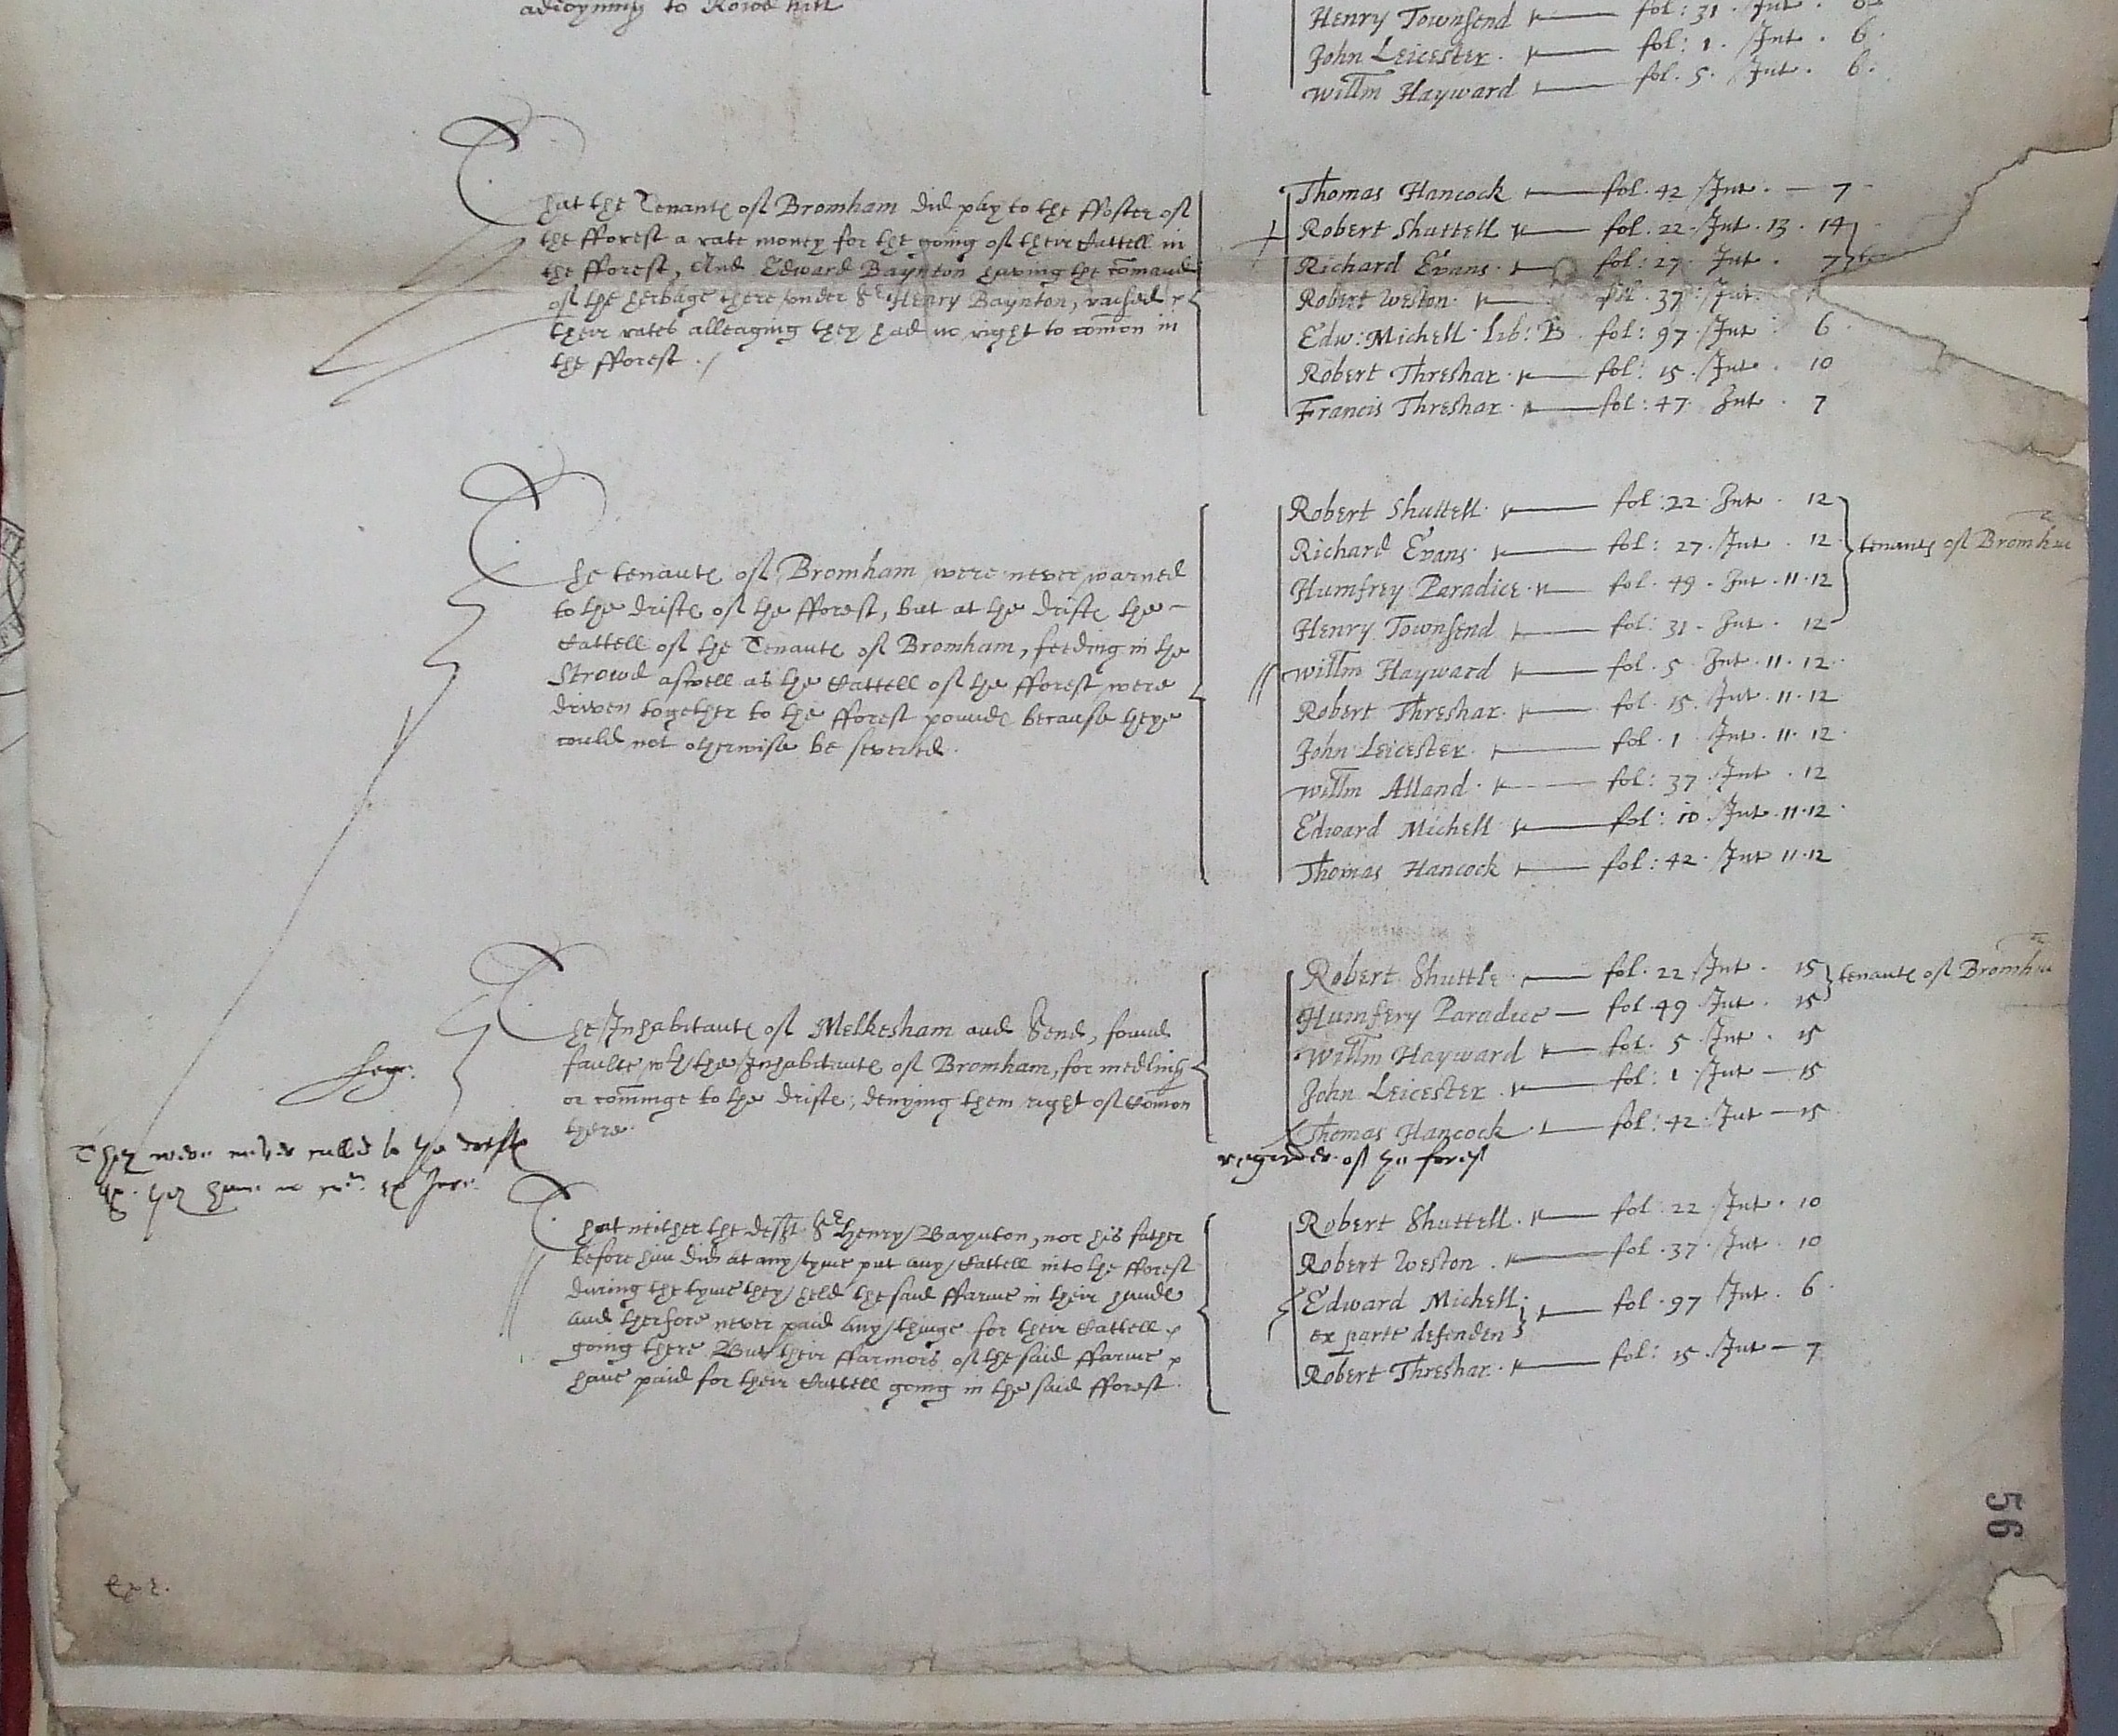 adioyning to Rowd hill
Henry Townsend fol: 31. Int. 6
John Leicester. fol: 1. Int. 6.
Willm Hayward fol. 5. Int. 6.
That the Tenants of Bromham did pay to the fforster of
the fforest a rate money for the going of their Cattell in
the fforest, And Edward Baynton having the comaund
of the herbage there under Sr Henry Baynton, raysed
their rates alleaging they had no right to comon in
the fforest ./
Thomas Hancock fol. 42 Int. — 7
Robert Shuttell fol. 22. Int. 13. 14
Richard Evans. fol: 27. Int. 7
Robert Weston. fol. 37. Int.
Edw: Michell lib: B. fol: 97. Int 6
Robert Threshar. fol: 15. Int. 10
Francis Threshar. fol: 47. Int. 7
The tenants of Bromham were never warned
to the drifte of the fforest, but at the drifte the –
Cattell of the Tenants of Bromham, feeding in the
Strowd aswell as the Cattell of the fforest were
driven together to the fforest pound because they
could not otherwise be severed.
Robert Shuttell. fol: 22. Int. 12
Richard Evans. fol: 27. Int. 12
Humfrey Paradice. fol. 49. Int. 11.12
Henry Townsend fol: 31. Int. 12
tenants of Bromham
Willm Hayward fol. 5. Int. 11. 12.
Robert Threshar. fol. 15. Int. 11.12
John Leicester. fol. 1 Int. 11. 12.
Willm Alland. fol: 37. Int. 12
Edward Michell fol: 10. Int. 11.12.
Thomas Hancock fol: 42. Int 11.12
The Inhabitants of Melkesham and Send, found
faulte wth the Inhabitants of Bromham, for medling
or comminge to the drifte, denying them right of Comon
there.
Robert Shuttle. fol. 22 Int. 15
Humfery Paradice — fol. 49 Int. 15
tenants of Bromham
Willm Hayward fol. 5. Int. 15
John Leicester. fol: 1. Int — 15
Thomas Hancock. fol: 42. Int — 15
They were never called to the drifte
regarder of the forest
That neither the deft Sr Henry Baynton, nor his father
before him did at any tyme put any Cattell into the fforest
during the tyme they held the said ffarme in their hands
and therfore never paid any thinge for their Cattell
going there But their ffarmors of the said ffarme
have paid for their Cattell going in the said fforest.
Robert Shuttell. fol: 22. Int. 10
Robert Weston. fol. 37. Int. 10
Edward Michell. fol. 97 Int. 6.
ex parte defenden
Robert Threshar. fol: 15. Int — 7
56